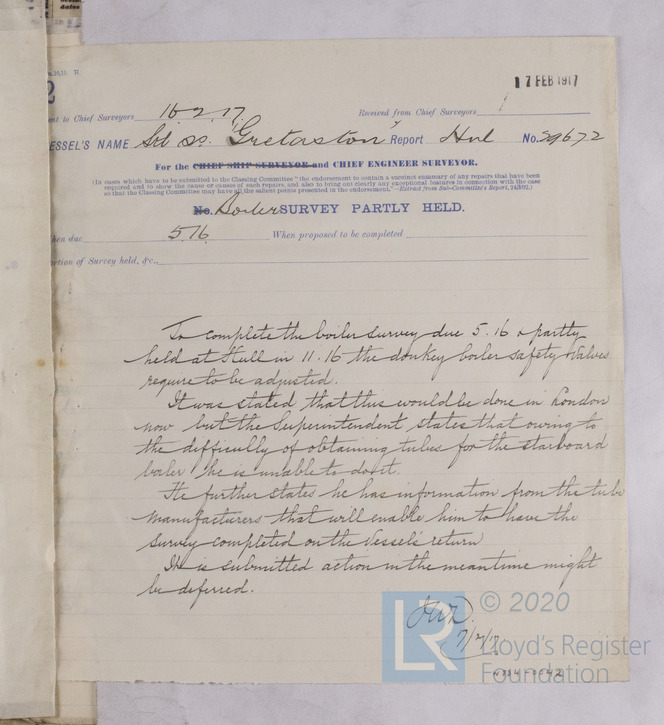 dates
17 FEB 1917
2
ent to Chief Surveyors 16.2.17 Received from Chief Surveyors
ESSEL'S NAME Stl ss. "Gretaston" Report Hul No. 29672
For the CHIEF SHIP SURVEYOR and CHIEF ENGINEER SURVEYOR.
(In cases which have to be submitted to the Classing Committee "the endorsement to contain a succinct summary of any repairs that have been
required and to show the cause or causes of such repairs, and also to bring out clearly any exceptional features in connection with the case
so that the Classing Committee may have all the salient points presented in the endorsement."—Extract from Sub-Committee's Report,
No. Boiler SURVEY PARTLY HELD.
hen due 5.16 When proposed to be completed
ortion of Survey held, &c.,
To complete the boiler survey due 5.16 & partly
held at Hull in 11.16 the donkey boiler safety valves
require to be adjusted.
It was stated that this would be done in London
now but the Superintendent states that owing to
the difficully of obtaining tubes for the starboard
boiler he is unable to do it.
He further states he has information from the tube
manufacturers that will enable him to have the
survey completed on the Vessel's return
It is submitted action in the meantime might
be deferred.
7/2/17.
LR © 2020
Lloyd's Register
Foundation
W334-0042